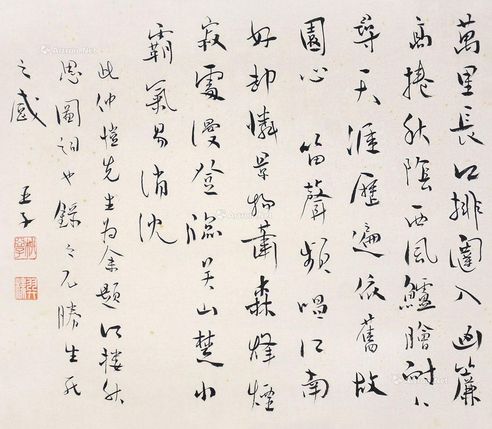 萬里長江排闥入幽簾
高捲秋陰西風鱸膾耐人
尋天涯歷遍依舊故
園心 笛聲頻唱江南
好却憐景物蕭森烽煙
寂處漫登臨吳山楚水
霸氣易消沈
此仲愷先生為余題江樓秋
思圖詞也錄之尤勝生死
之感 王子